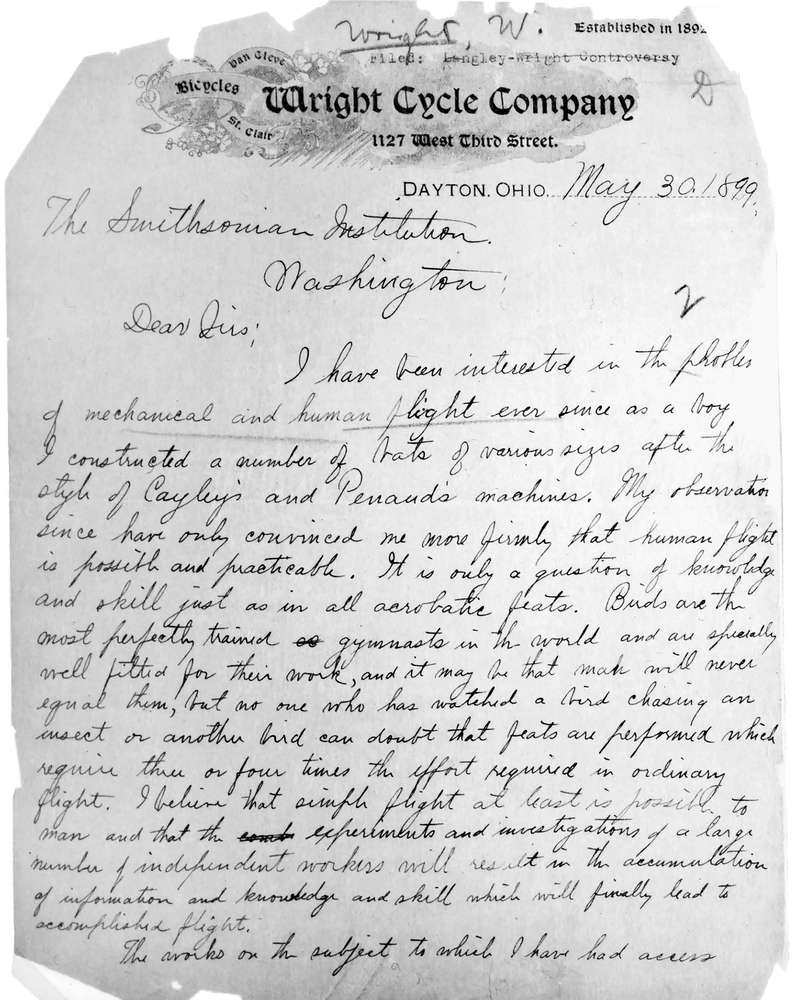 Wright, W.
Established in 1892
Filed: Langley-Wright Controversy
D
Van Cleve
Bicycles
St. Clair
Wright Cycle Company
1127 West Third Street.
DAYTON, OHIO. May 30, 1899.
The Smithsonian Institution.
Washington;
2
Dear Sirs;
I have been interested in the problem
of mechanical and human flight ever since as a boy
I constructed a number of bats of various sizes after the
style of Cayley's and Penaud's machines. My observations
since have only convinced me more firmly that human flight
is possible and practicable. It is only a question of knowledge
and skill just as in all acrobatic feats. Birds are the
most perfectly trained as gymnasts in the world and are specially
well fitted for their work, and it may be that man will never
equal them, but no one who has watched a bird chasing an
insect or another bird can doubt that feats are performed which
require three or four times the effort required in ordinary
flight. I believe that simple flight at least is possible to
man and that the comb experiments and investigations of a large
number of independent workers will result in the accumulation
of information and knowledge and skill which will finally lead to
accomplished flight.
The works on the subject to which I have had access